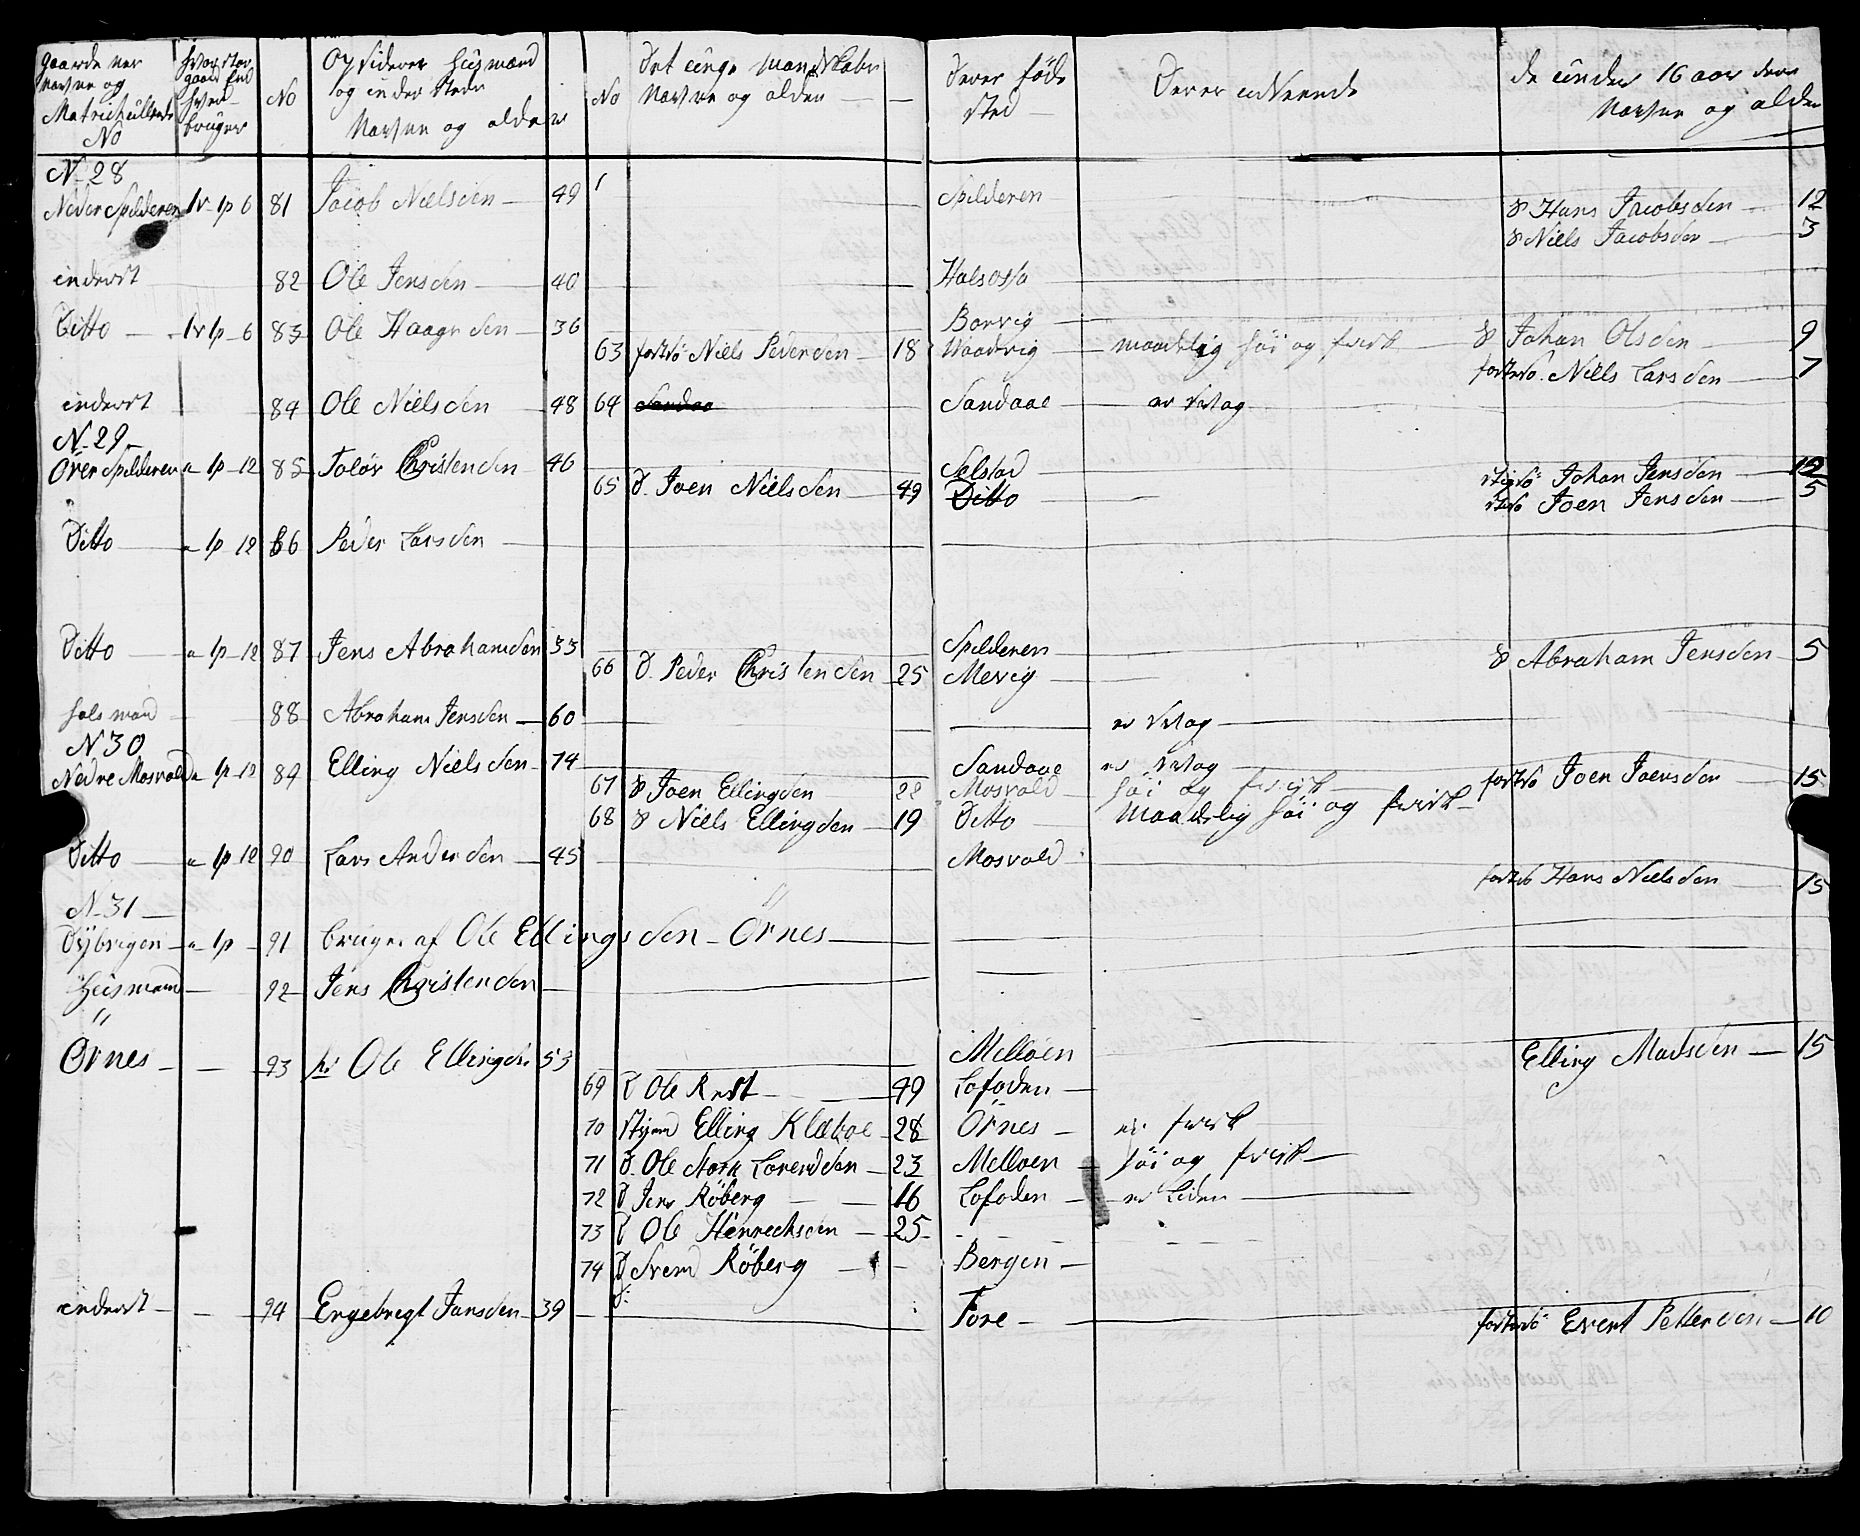 Gaardenes Navne og Matriculerede No
hvor stor gaard End hver bruger
No
Opsidere huusmænd og inderster Navne og alder
No
Det unge Mandskabs Navne og alder
Deres føde sted
Deres udseende
de under 16 aar deres Navne og alder
N. 28
Neder Spilderen 1v 1p 6 81 Jacob Nielsen 49 Spilderen S Hans Jacobsen 12
S Niels Jacobsen 3
inderst 82 Ole Jensen 40 Halsosa
Ditto 1v 1p 6 83 Ole Haagensen 36 Borvig
63 fosters Niels Pedersen 18 maadelig høi og frisk S Johan Olsen 9
fosters. Niels Larsen 7
inderst 84 Ole Nielsen 48 64 Sandaa Sandaae er svag
N. 29
Over Spilderen 1p 12 85 Christensen 46 Selstad stifsø Johan Jensen 12
65 D. Joen Nielsen 49 Ditto Joen Jensen 5
Ditto 1p 12 86 Peder Larsen
Ditto 1p 12 87 Jens Abrahamsen 33 Spilderen S Abraham Jensen 5
66 D. Peder Christensen 25 Mevig
88 Abraham Jensen 60 er svag
N 30
Nedre Mosvold 1p 12 89 Elling Nielsen 74 Sandaae er svag fosters Joen Joensen 15
67 S Joen Ellingsen 22 Mosvold høi og frisk
68 S Niels Ellingsen 19 Ditto maadelig høi og frisk
Ditto 1p 12 90 Lars Andersen 45 Mosvold
fosters Hans Nielsen 15
N. 31
Dybvigen 1p 91 bruges af Ole Ellingsen Örnes
Huusmand 92 Jens Christensen
"
Örnes 93 hr Ole Ellingsen 53 Melløen Elling Madsen 15
69 D Ole Rest 49 Lofoden
70 Elling Klæboe 28 Örnes er frisk
71 D. Ole Lorendsen 23 Melløen høi og frisk
72 D Jens Røberg 16 Lofoden er Liden
73 D Ole Hinrechsen 25
74 D Svend Røberg Bergen
inderst 94 Engebregt Jansen 39 Fore fosters Evert Pettersen 10